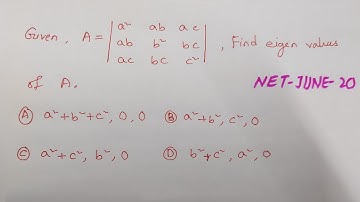 Given, A = | a² ab ac |
| ab b² bc |
| ac bc c² | , Find eigen values
of A.
NET-JUNE-20
(A) a²+b²+c², 0, 0 (B) a²+b², c², 0
(C) a²+c², b², 0 (D) b²+c², a², 0